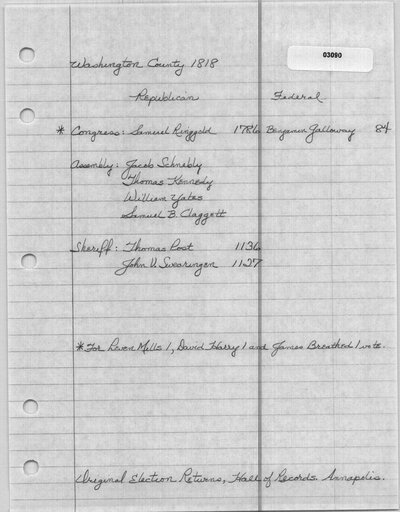 Washington County 1818
03090
Republican Federal
* Congress: Samuel Ringgold 1786 Benjamin Galloway 84
Assembly: Jacob Schnebly
Thomas Kennedy
William Yates
Samuel B. Claggett
Sheriff: Thomas Post 1136
John V. Swearingen 1127
* For Leven Mills 1, David Harry 1 and James Breathed 1 vote.
Original Election Returns, Hall of Records. Annapolis.